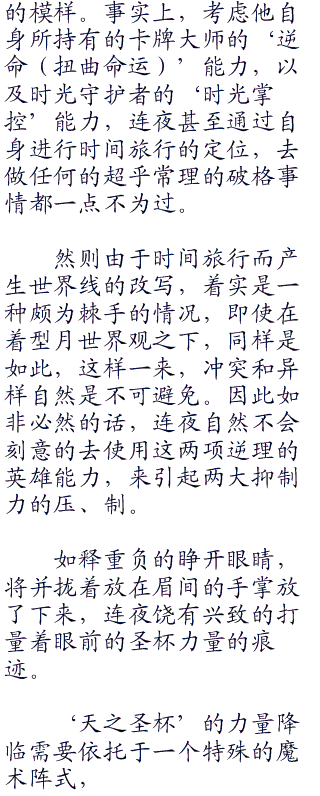 的模样。事实上，考虑他自
身所持有的卡牌大师的‘逆
命（扭曲命运）’能力，以
及时光守护者的‘时光掌
控’能力，连夜甚至通过自
身进行时间旅行的定位，去
做任何的超乎常理的破格事
情都一点不为过。
然则由于时间旅行而产
生世界线的改写，着实是一
种颇为棘手的情况，即使在
着型月世界观之下，同样是
如此，这样一来，冲突和异
样自然是不可避免。因此如
非必然的话，连夜自然不会
刻意的去使用这两项逆理的
英雄能力，来引起两大抑制
力的压、制。
如释重负的睁开眼睛，
将并拢着放在眉间的手掌放
了下来，连夜饶有兴致的打
量着眼前的圣杯力量的痕
迹。
‘天之圣杯’的力量降
临需要依托于一个特殊的魔
术阵式，